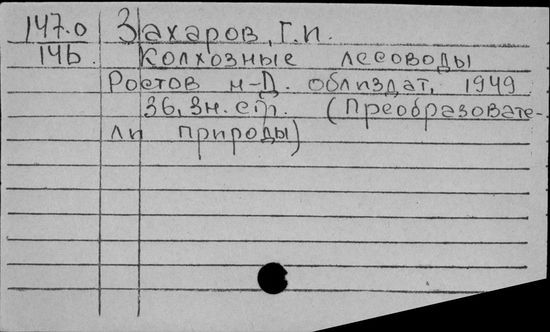 147.0 Захаров, Г.И.
146. Колхозные лесоводы
Ростов н-Д. облиздат, 1949
36, 3н. с.
(Преобразовате-
ли природы)